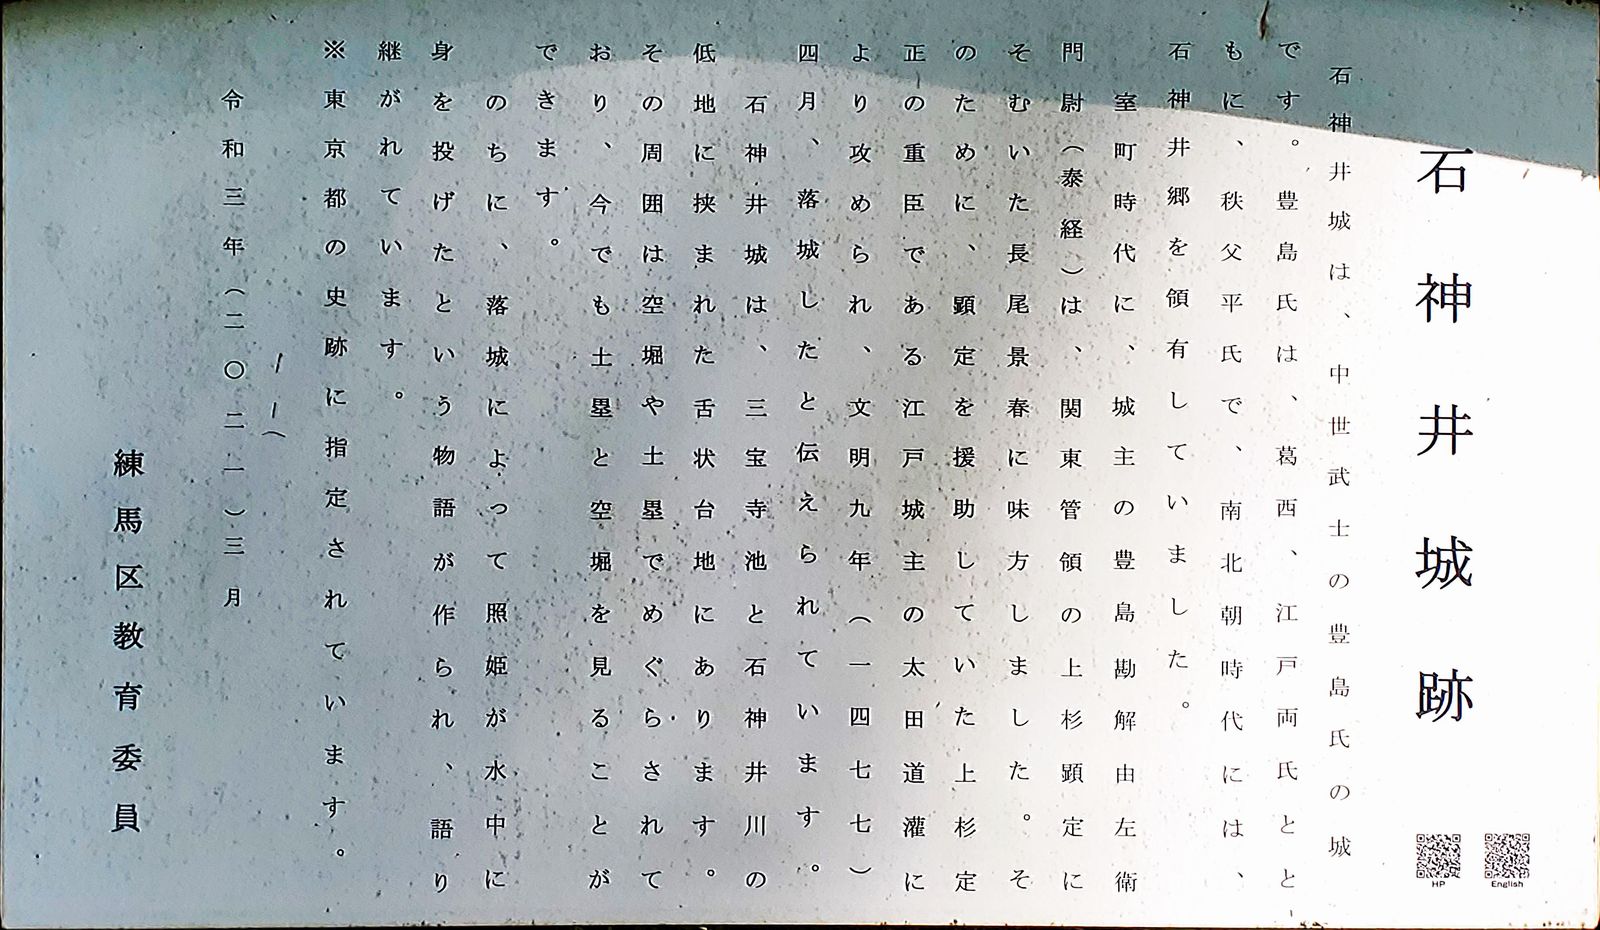 石神井城跡
石神井城は、中世武士の豊島氏の城
です。豊島氏は、葛西、江戸両氏とと
もに、秩父平氏で、南北朝時代には、
石神井郷を領有していました。
室町時代に、城主の豊島勘解由左衛
門尉（泰経）は、関東管領の上杉顕定に
そむいた長尾景春に味方しました。そ
のために、顕定を援助していた上杉定
正の重臣である江戸城主の太田道灌に
より攻められ、文明九年（一四七七）
四月、落城したと伝えられています。
石神井城は、三宝寺池と石神井川の
低地に挟まれた舌状台地にあります。
その周囲は空堀や土塁でめぐらされて
おり、今でも土塁と空堀を見ることが
できます。
のちに、落城によって照姫が水中に
身を投げたという物語が作られ、語り
継がれています。
※東京都の史跡に指定されています。
令和三年（二〇二一）三月
練馬区教育委員
HP
English